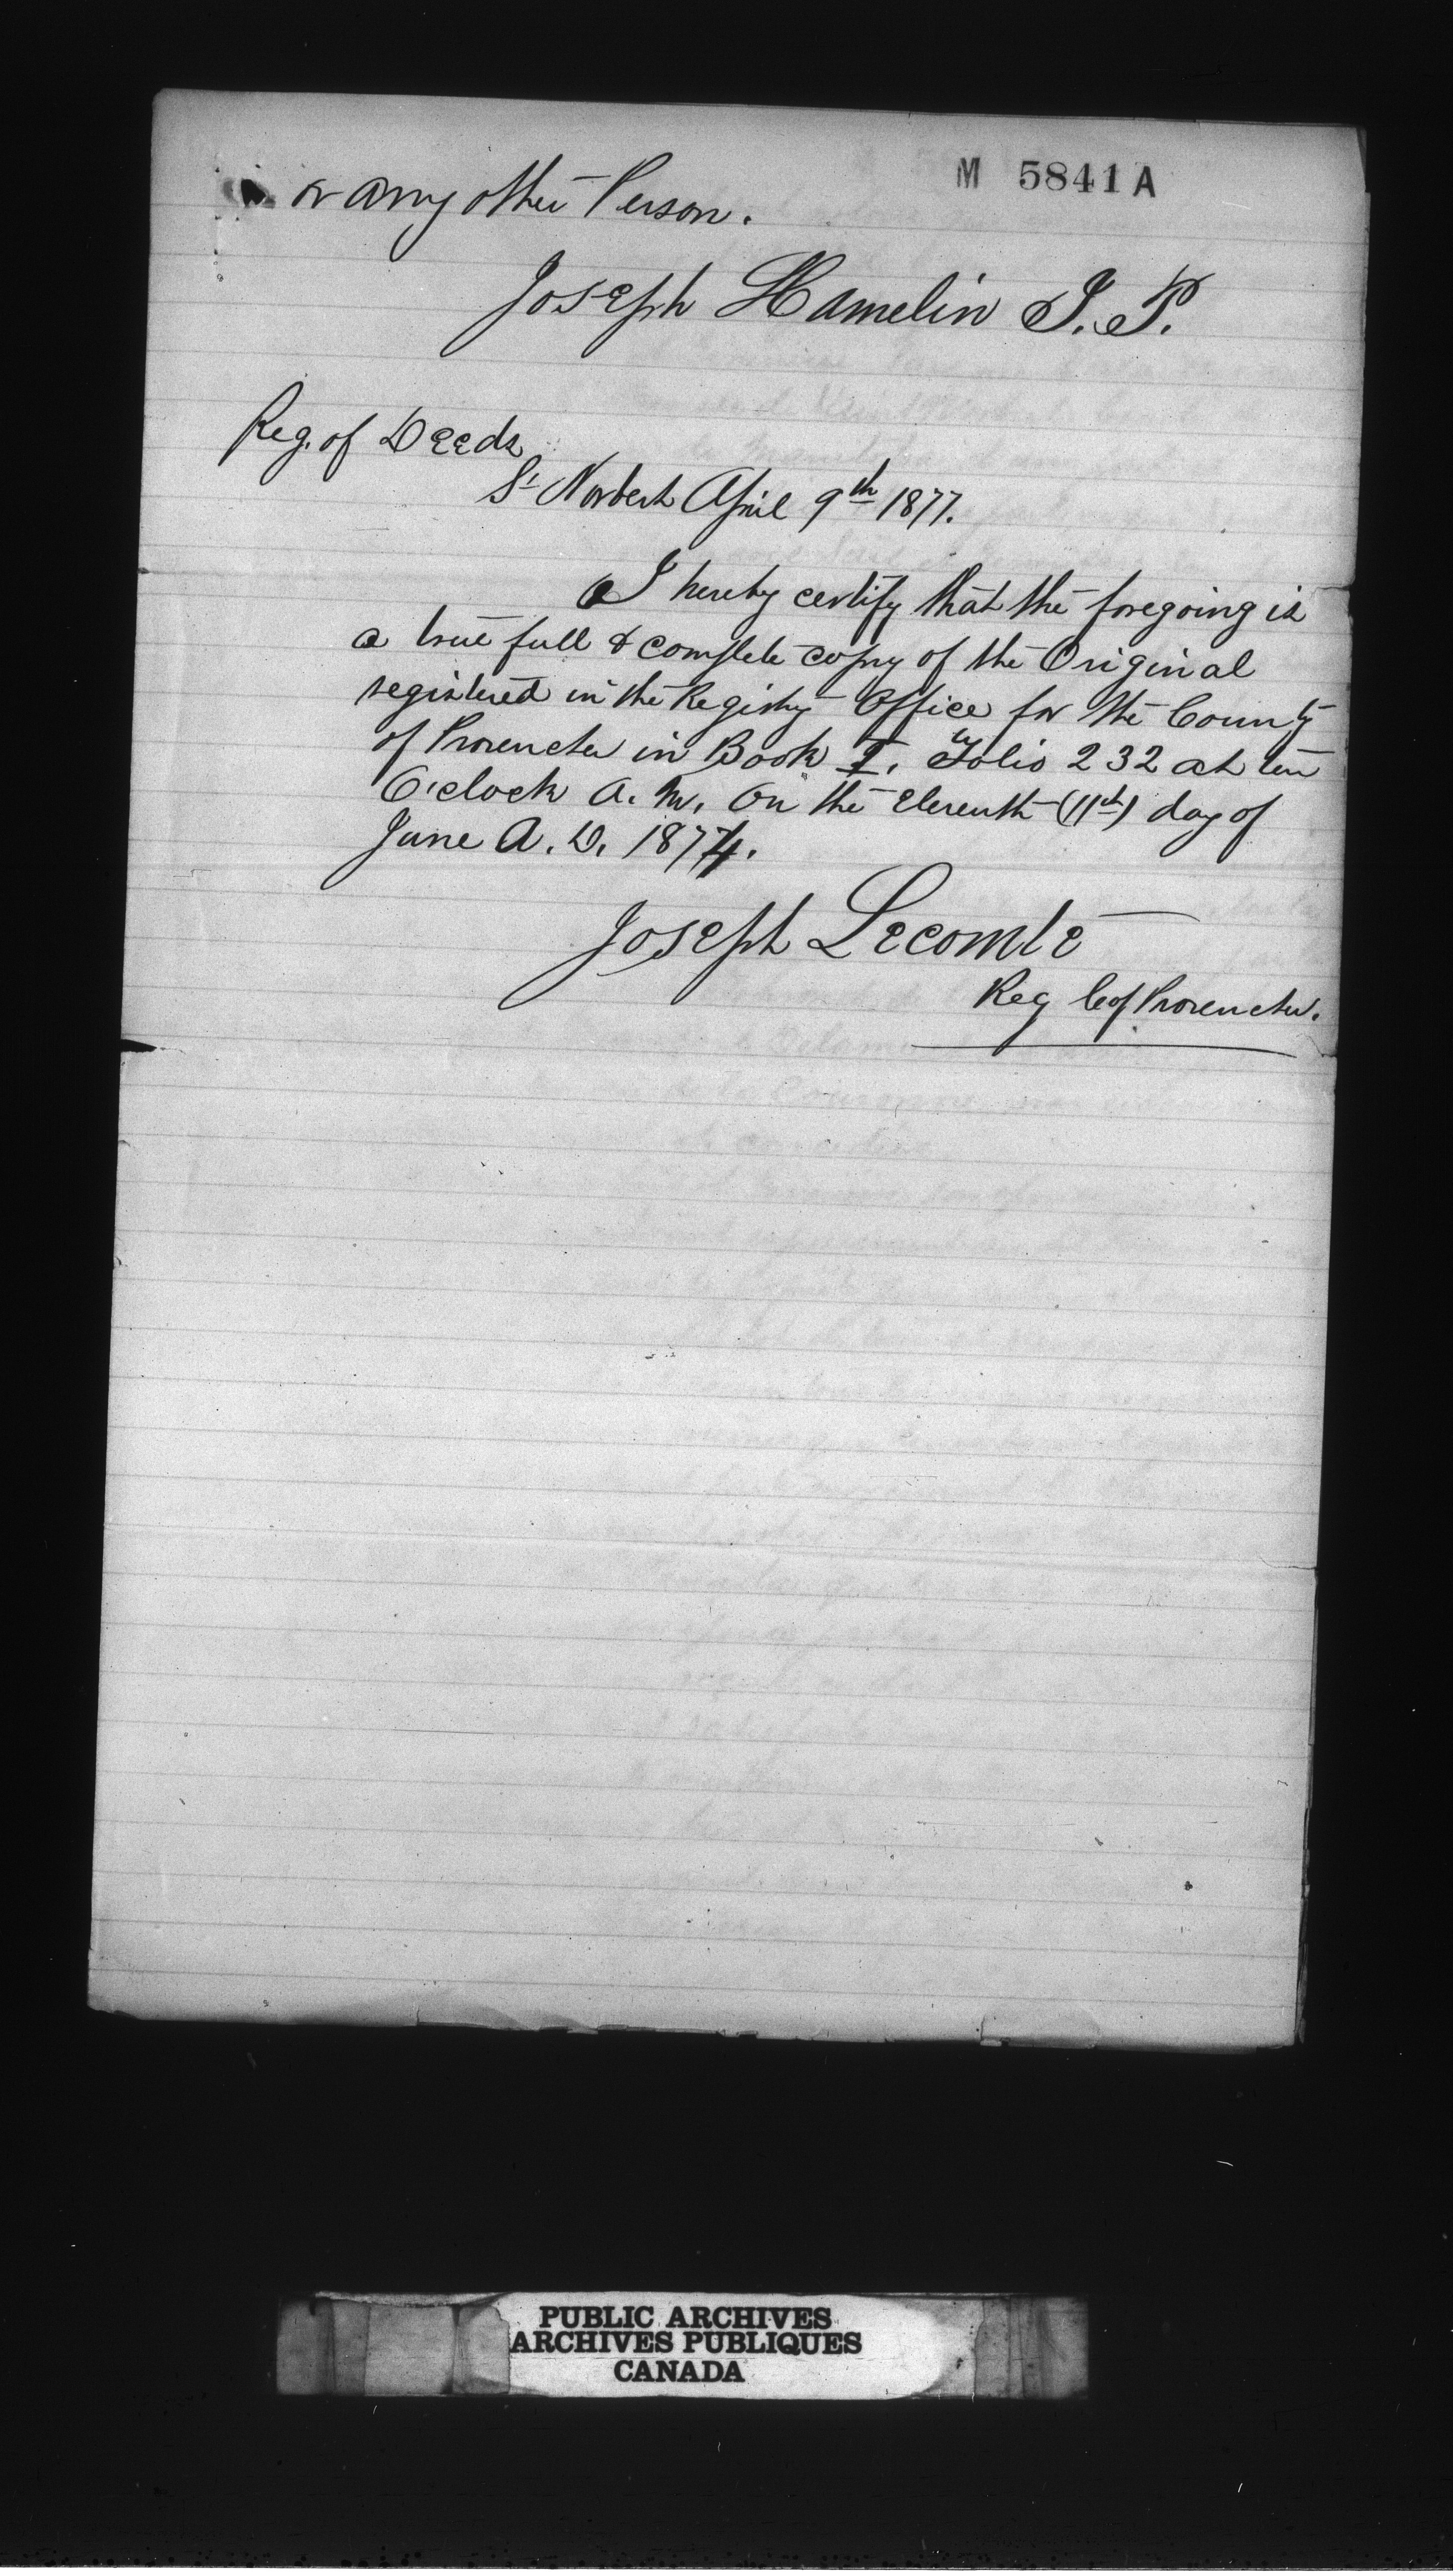 M 5841 A
or any other Person.
Joseph Hamelin J. P.
Reg. of Deeds
St Norbert April 9th 1877.
I hereby certify that the foregoing is
a true full & complete copy of the Original
registered in the Registry Office for the County
of Provencher in Book I. Folio 232 at ten
O'clock A. M. On the Eleventh (11th) day of
June A. D. 1874.
Joseph Lecomte
Reg Co of Provencher.
PUBLIC ARCHIVES
ARCHIVES PUBLIQUES
CANADA